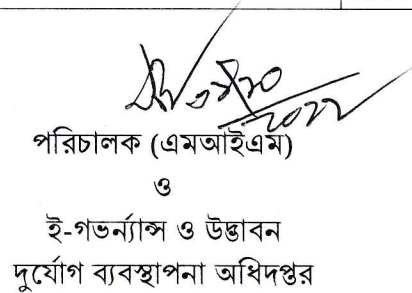 পরিচালক (এমআইএম)
ও
ই-গভর্ন্যান্স ও উদ্ভাবন
দুর্যোগ ব্যবস্থাপনা অধিদপ্তর